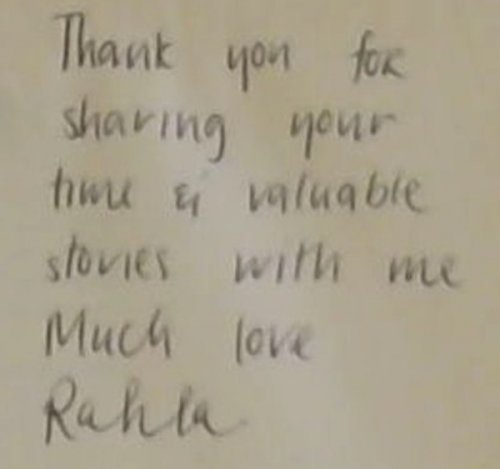 Thank you for
sharing your
time & valuable
stories with me
Much love
Rahla